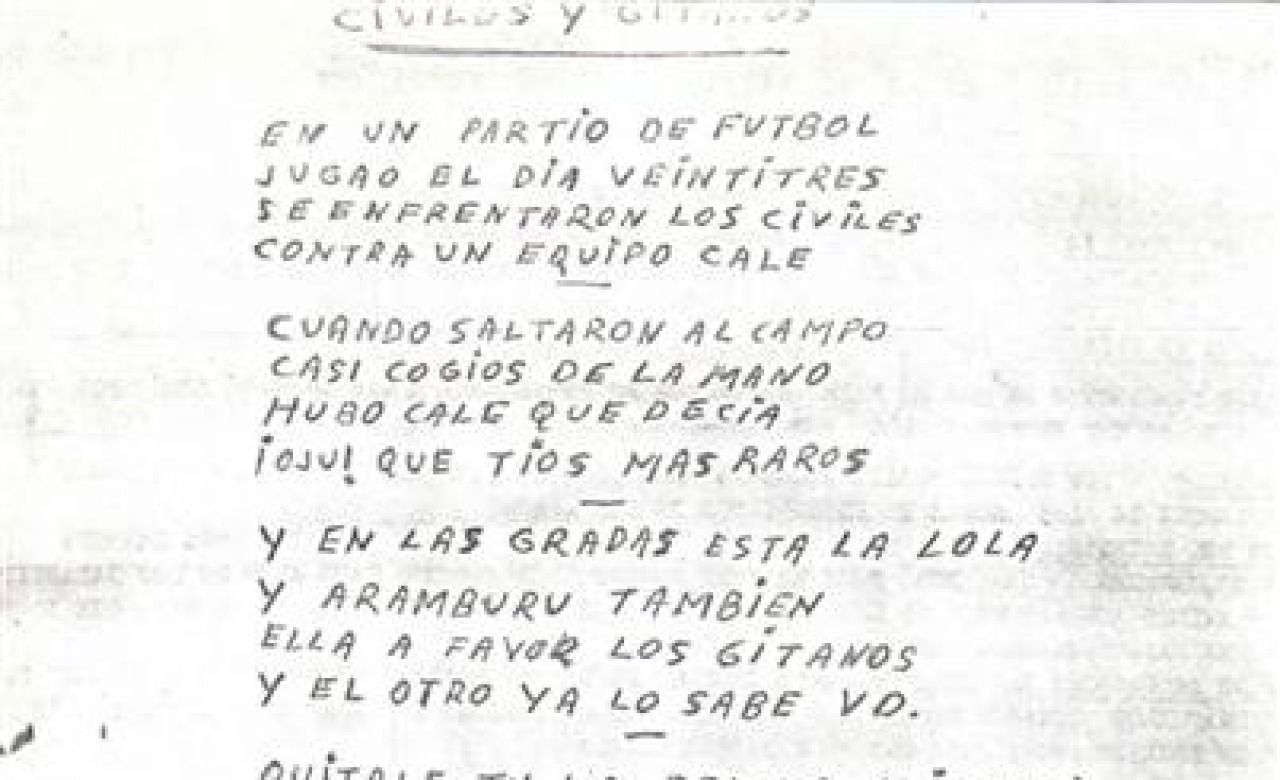 CiViLES Y GiTANOS
EN UN PARTiO DE FUTBOL
JUGAO EL DiA VEiNTiTRES
SE ENFRENTARON LOS CiViLES
CONTRA UN EQUiPO CALE
CUANDO SALTARON AL CAMPO
CASI COGiOS DE LA MANO
HUBO CALE QUE DECiA
¡OJU! QUE TiOS MAS RAROS
Y EN LAS GRADAS ESTA LA LOLA
Y ARAMBURU TAMBiEN
ELLA A FAVOR LOS GiTANOS
Y EL OTRO YA LO SABE VD.